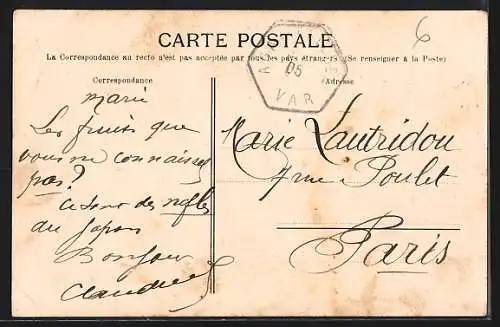 CARTE POSTALE
La Correspondance au recto n'est pas acceptée par tous les pays étrangers (Se renseigner à la Poste)
Correspondance
Adresse
6
A 05
VAR
Marie
Les fruits que
vous ne connaissez
pas?
ce sont des nèfles
du Japon
Bonjour
Marie Lautridou
7 rue Poulet
Paris